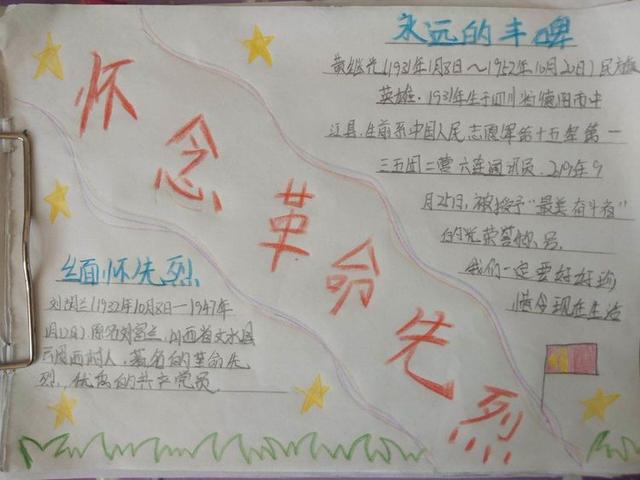 怀念革命先烈
永远的丰碑
黄继光(1931年1月8日～1952年10月20日)民族
英雄.1931年生于四川省德阳市中
江县,生前系中国人民志愿军第十五军第一
三五团二营六连通讯员.2019年9
月25日,被授予"最美奋斗者"
的光荣称号.
我们一定要好好珍
惜今现在生活
缅怀先烈
刘胡兰(1932年10月8日—1947年
1月12日)原名刘富兰,山西省文水县
云周西村人,著名的革命先
烈,优秀的共产党员